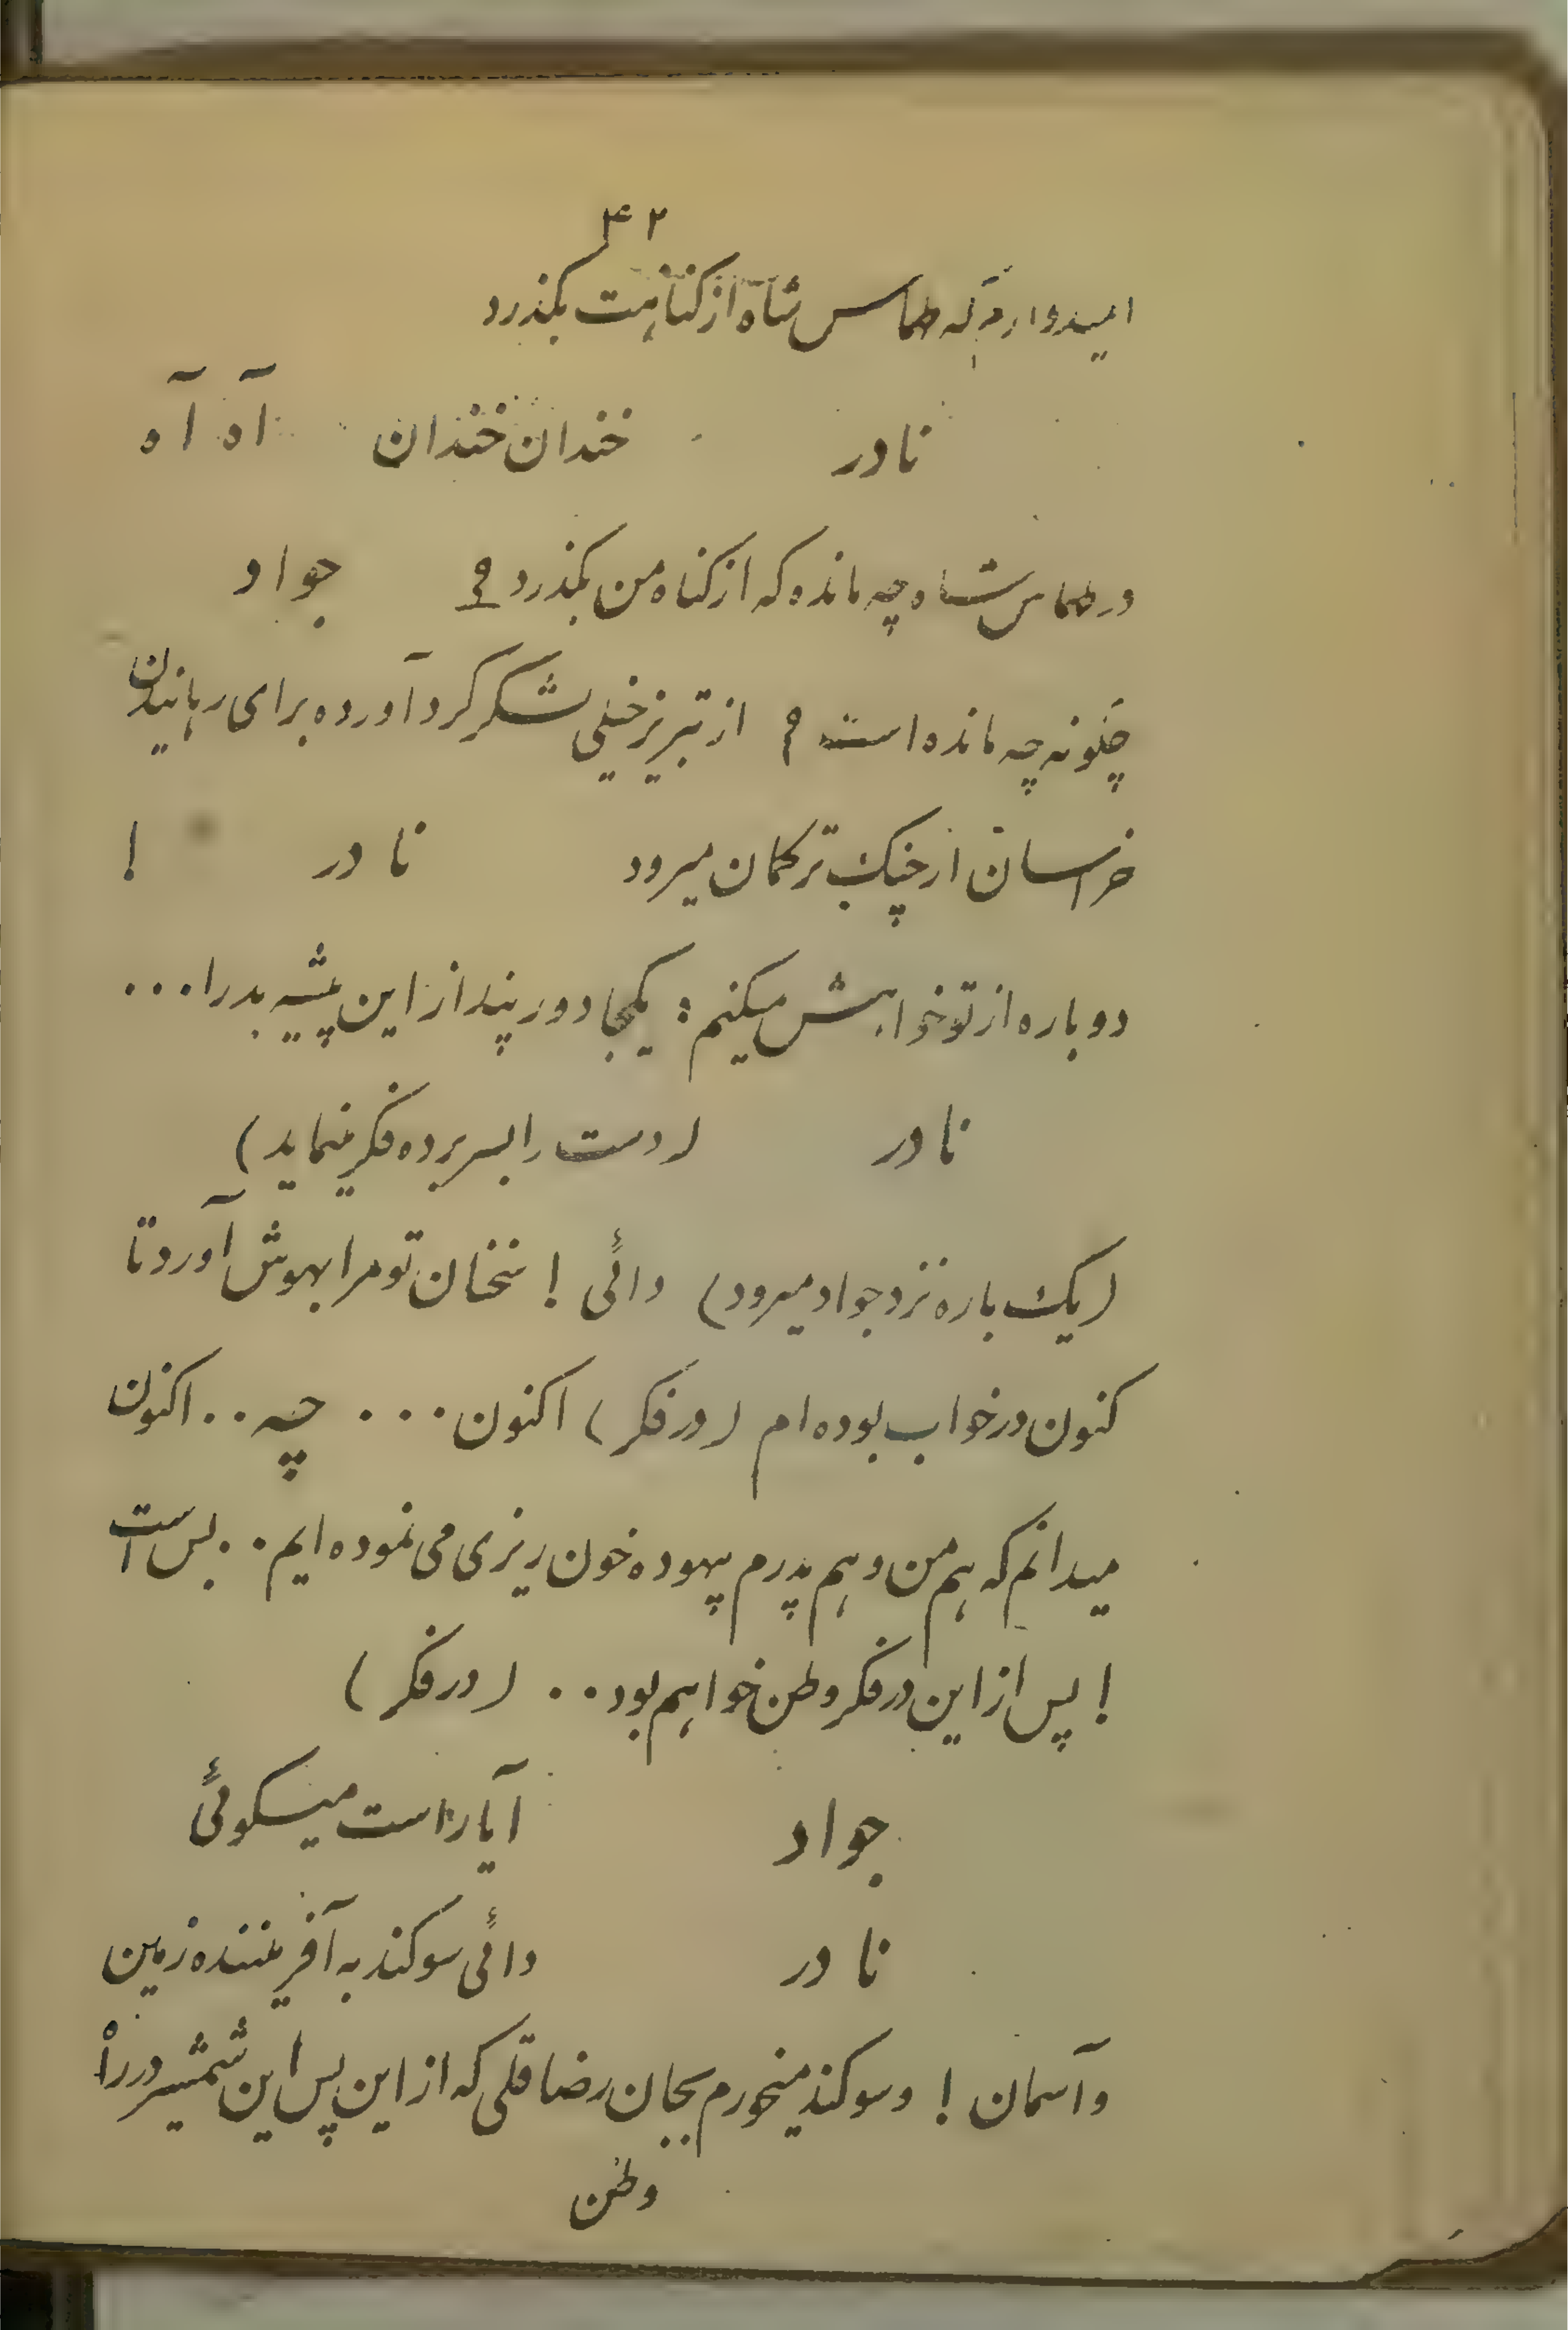 ۴۲
امیدوارم که طهماسب شاه از کناهت بکذرد
نادر خندان خندان آه آه
در طهماس شاه چه مانده که از کناه من بکذرد ؟ جواد
چکونه چه مانده است ؟ از تبریز خیلی لشکر کرد آورده برای رهانیدن
خراسان از چنک ترکمان میرود نادر !
دوباره از تو خواهش میکنم : یکجا دور بینداز این پیشه بد را ...
نادر (دست را بسر برده فکر مینماید)
(یک باره نزد جواد میرود) دائی ! سخنان تو مرا بهوش آورد تا
کنون در خواب بوده ام (در فکر) اکنون ... چه .. اکنون
میدانم که هم من و هم پدرم بیهوده خون ریزی می نموده ایم .. بس است
! پس از این در فکر وطن خواهم بود .. (در فکر)
جواد آیا راست میکوئی
نادر دائی سوکند به آفریننده زمین
و آسمان ! و سوکند میخورم بجان رضا قلی که از این پس این شمشیر در راه
وطن